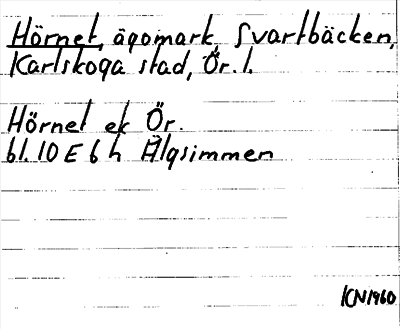 Hörnet, ägomark, Svartbäcken,
Karlskoga stad, Ör. l.
Hörnet ek Ör.
bl. 10 E 6 h Älgsimmen
ICN 1960